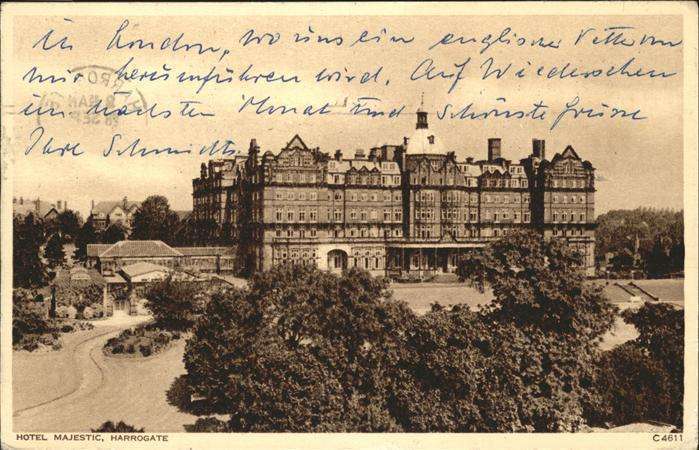 in London, wo uns ein englischer Vetter von
mir herumführen wird. Auf Wiedersehen
im nächsten Monat und Schönste Grüsse
Ihre Schmidts.
HOTEL MAJESTIC, HARROGATE
C4611